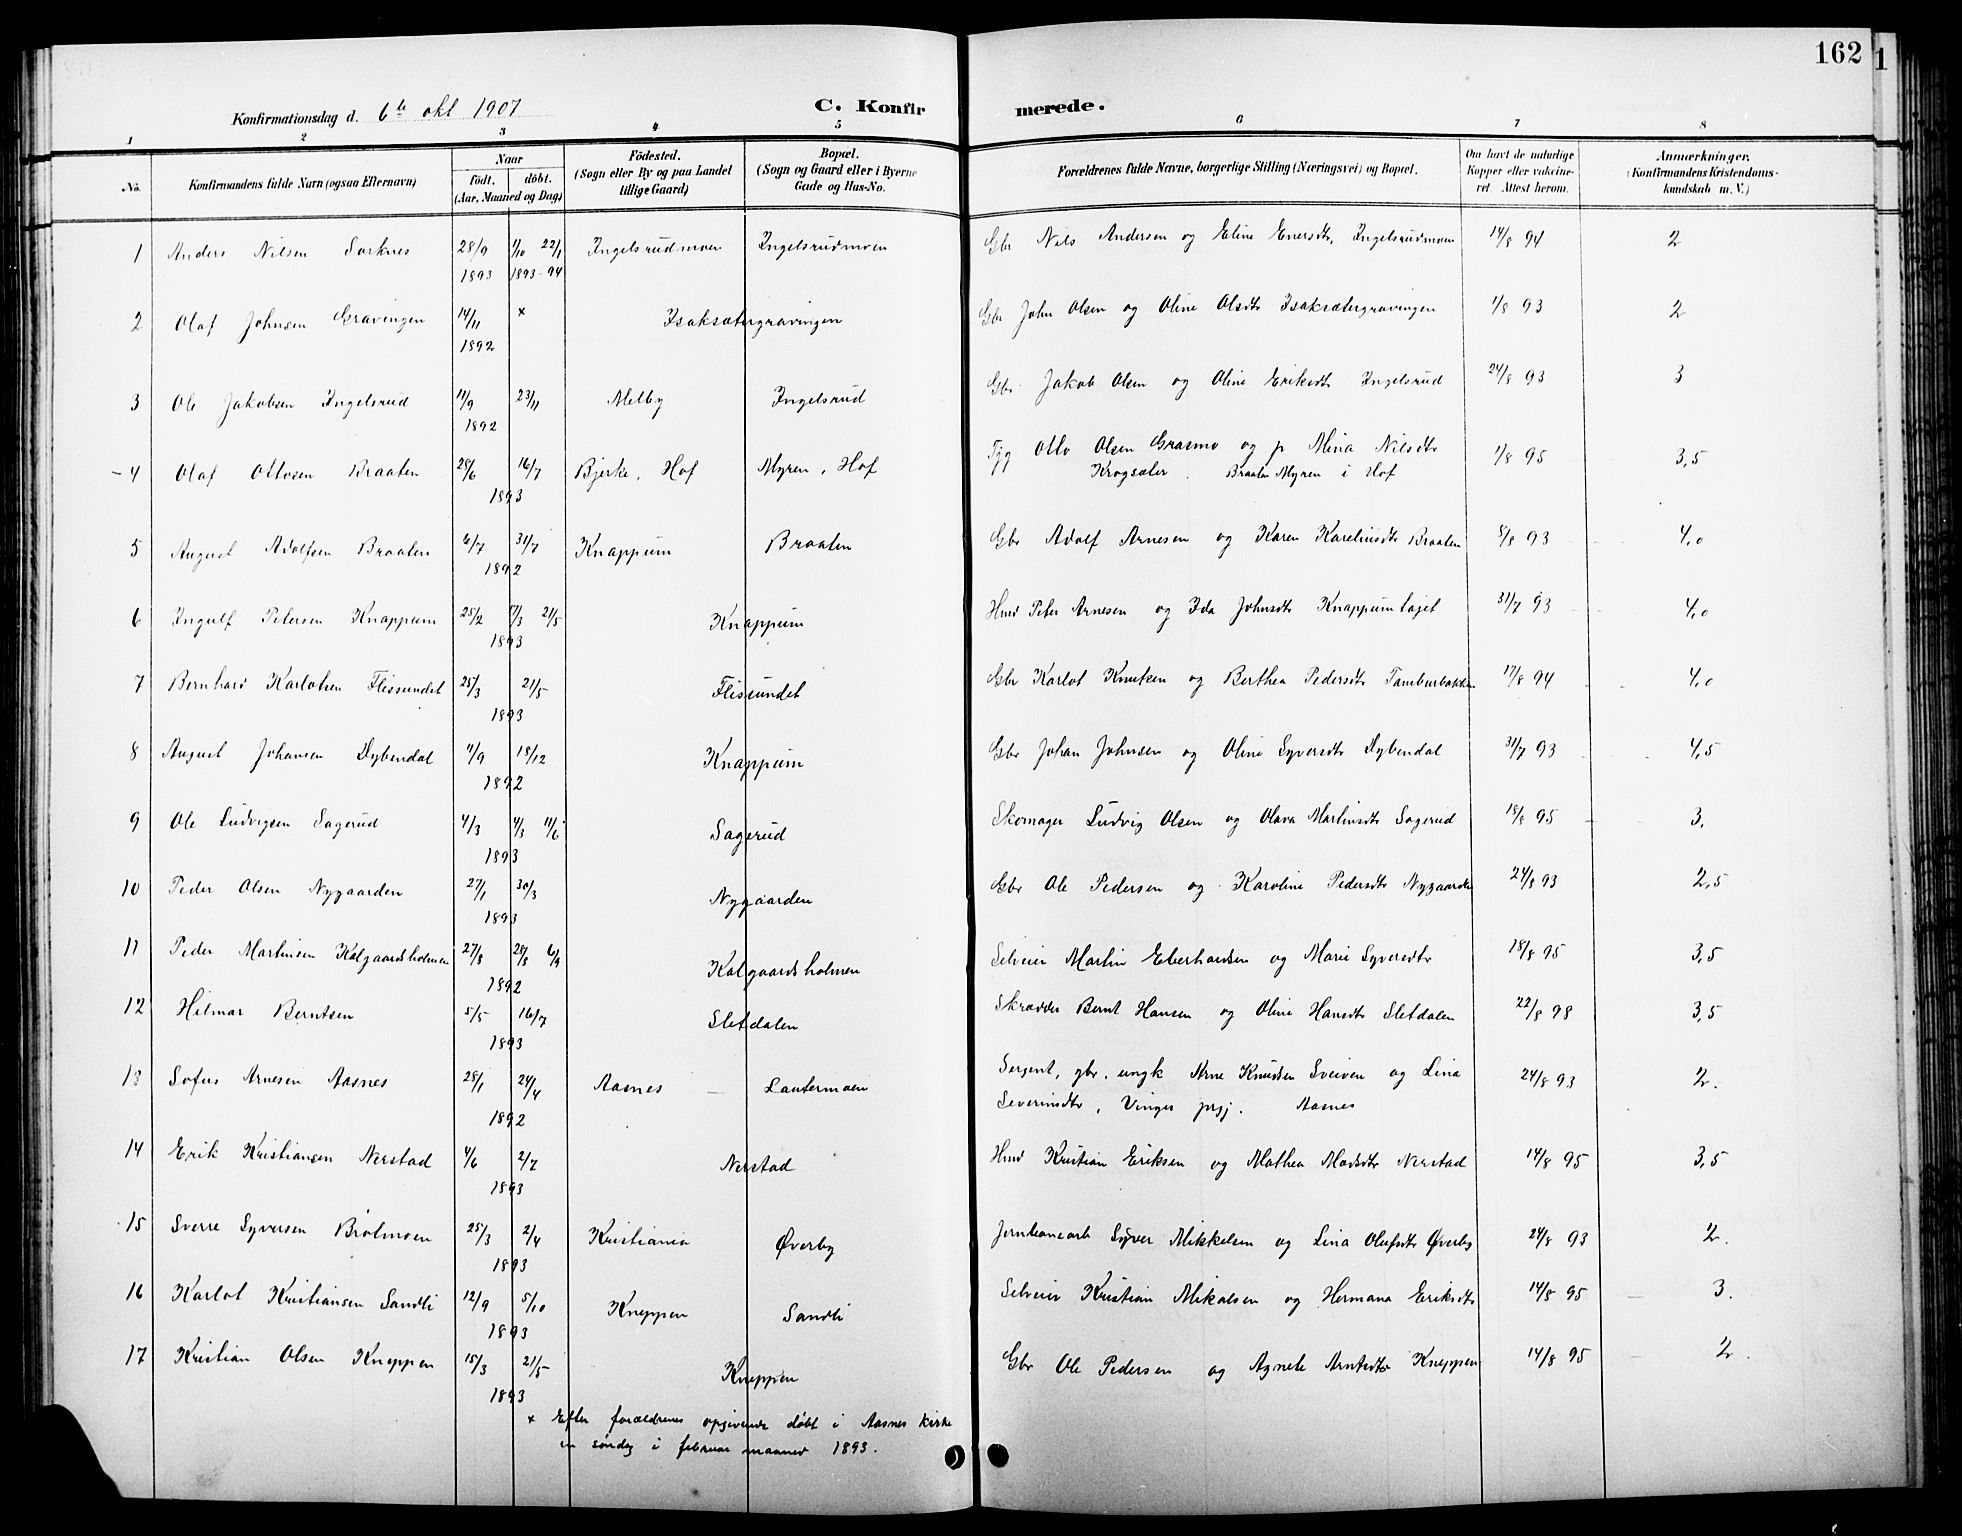 162
1
Konfirmationsdag d. 6te okt 1907
C. Konfirmerede.
1 2 3 4 5 6 7 8
No. Konfirmandens fulde Navn (ogsaa Efternavn) Naar Födt. döbt. (Aar, Maaned og Dag) Födested. (Sogn eller By og paa Landet tillige Gaard) Bopæl. (Sogn og Gaard eller i Byerne Gade og Hus-No. Forældrenes fulde Navne, borgerlige Stilling (Næringsvei) og Bopæl. Om havt de naturlige Kopper eller vakcineret. Attest herom. Anmærkninger. (Konfirmandens Kristendomskundskab m. V.)
1 Anders Nilsen Sorknes 28/9 1/10 22/1 Ingelsrudmoen Ingelsrudmoen Gbr Nils Andersen og Eline Enersdtr, Ingelsrudmoen 14/8 94 2
1893 1893-94
2 Olaf Johnsen Gravingen 14/11 x Isaksætergravingen Gbr John Olsen og Oline Olsdtr Isaksætergravingen 1/8 93 2
1892
3 Ole Jakobsen Ingelsrud 11/9 23/11 Melby Ingelsrud Gbr. Jakob Olsen og Oline Eriksdtr Ingelsrud 24/8 93 3
1892
4 Olaf Ottosen Braaten 28/6 16/7 Bjerke, Hof Myren, Hof Tjg Otto Olsen Grasmo og p Mina Nilsdtr 1/8 95 3,5
1893 Krogsæter. Braaten Myren i Hof
5 August Adolfsen Braaten 6/7 31/7 Knappum Braaten Gbr Adolf Arnesen og Karen Karelriusdtr Braaten 8/8 93 4,0
1892
6 Ingulf Petersen Knappum 25/2 7/3 21/5 Knappum Hmd Peter Arnesen og Ida Johnsdtr Knappumtajet 31/7 93 4,0
1893
7 Bernhard Karlotsen Flissundet 25/3 21/5 Flissundet Gbr Karlot Knutsen og Berthea Pedersdtr Tamburbakken 17/8 94 4,0
1893
8 August Johansen Dybendal 11/9 18/12 Knappum Gbr Johan Johnsen og Oline Syversdtr Dybendal 31/7 93 4,5
1892
9 Ole Ludvigsen Sagerud 4/3 4/3 11/6 Sagerud Skomager Ludvig Olsen og Olava Martinsdtr Sagerud 18/8 95 3.
1893
10 Peder Olsen Nygaarden 27/1 30/3 Nygaarden Gbr Ole Pedersen og Karoline Pedersdtr Nygaarden 24/8 93 2,5
1893
11 Peder Martinsen Kalgaardsholmen 27/8 28/8 6/9 Kalgaardsholmen Selveier Martin Eberhardsen og Marie Syversdtr 18/8 95 3,5
1892
12 Hilmar Berntsen 5/5 16/7 Sletdalen Skrædder Bernt Hansen og Oline Hansdtr Sletdalen 22/8 98 3,5
1893
13 Sofus Arnesen Aasnes 28/1 24/4 Aasnes – Lautermoen Sergent, gbr. ungk Arne Knudsen Sveiven og Lina 24/8 93 2.
1892 Severinsdtr, Vinger prgj. Aasnes
14 Erik Kristiansen Nerstad 4/6 2/7 Nerstad Hmd Kristian Eriksen og Mathea Madsdtr Nerstad 14/8 95 3,5
1893
15 Sverre Syversen Brolmoen 25/3 2/4 Kristiania Øverby Jernbanearb Syver Mikkelsen og Lina Olufsdtr Øverby 24/8 93 2.
1893
16 Karlot Kristiansen Sandli 12/9 5/10 Kneppen Sandli Selveier Kristian Mikalsen og Hermana Eriksdtr 14/8 95 3.
1893
17 Kristian Olsen Kneppen 15/3 21/5 Kneppen Gbr Ole Pedersen og Agnete Arntsdtr Kneppen 14/8 95 2.
1893
x Efter forældrenes opgivende døbt i Aasnes kirke
en søndag i februar maaned 1893.